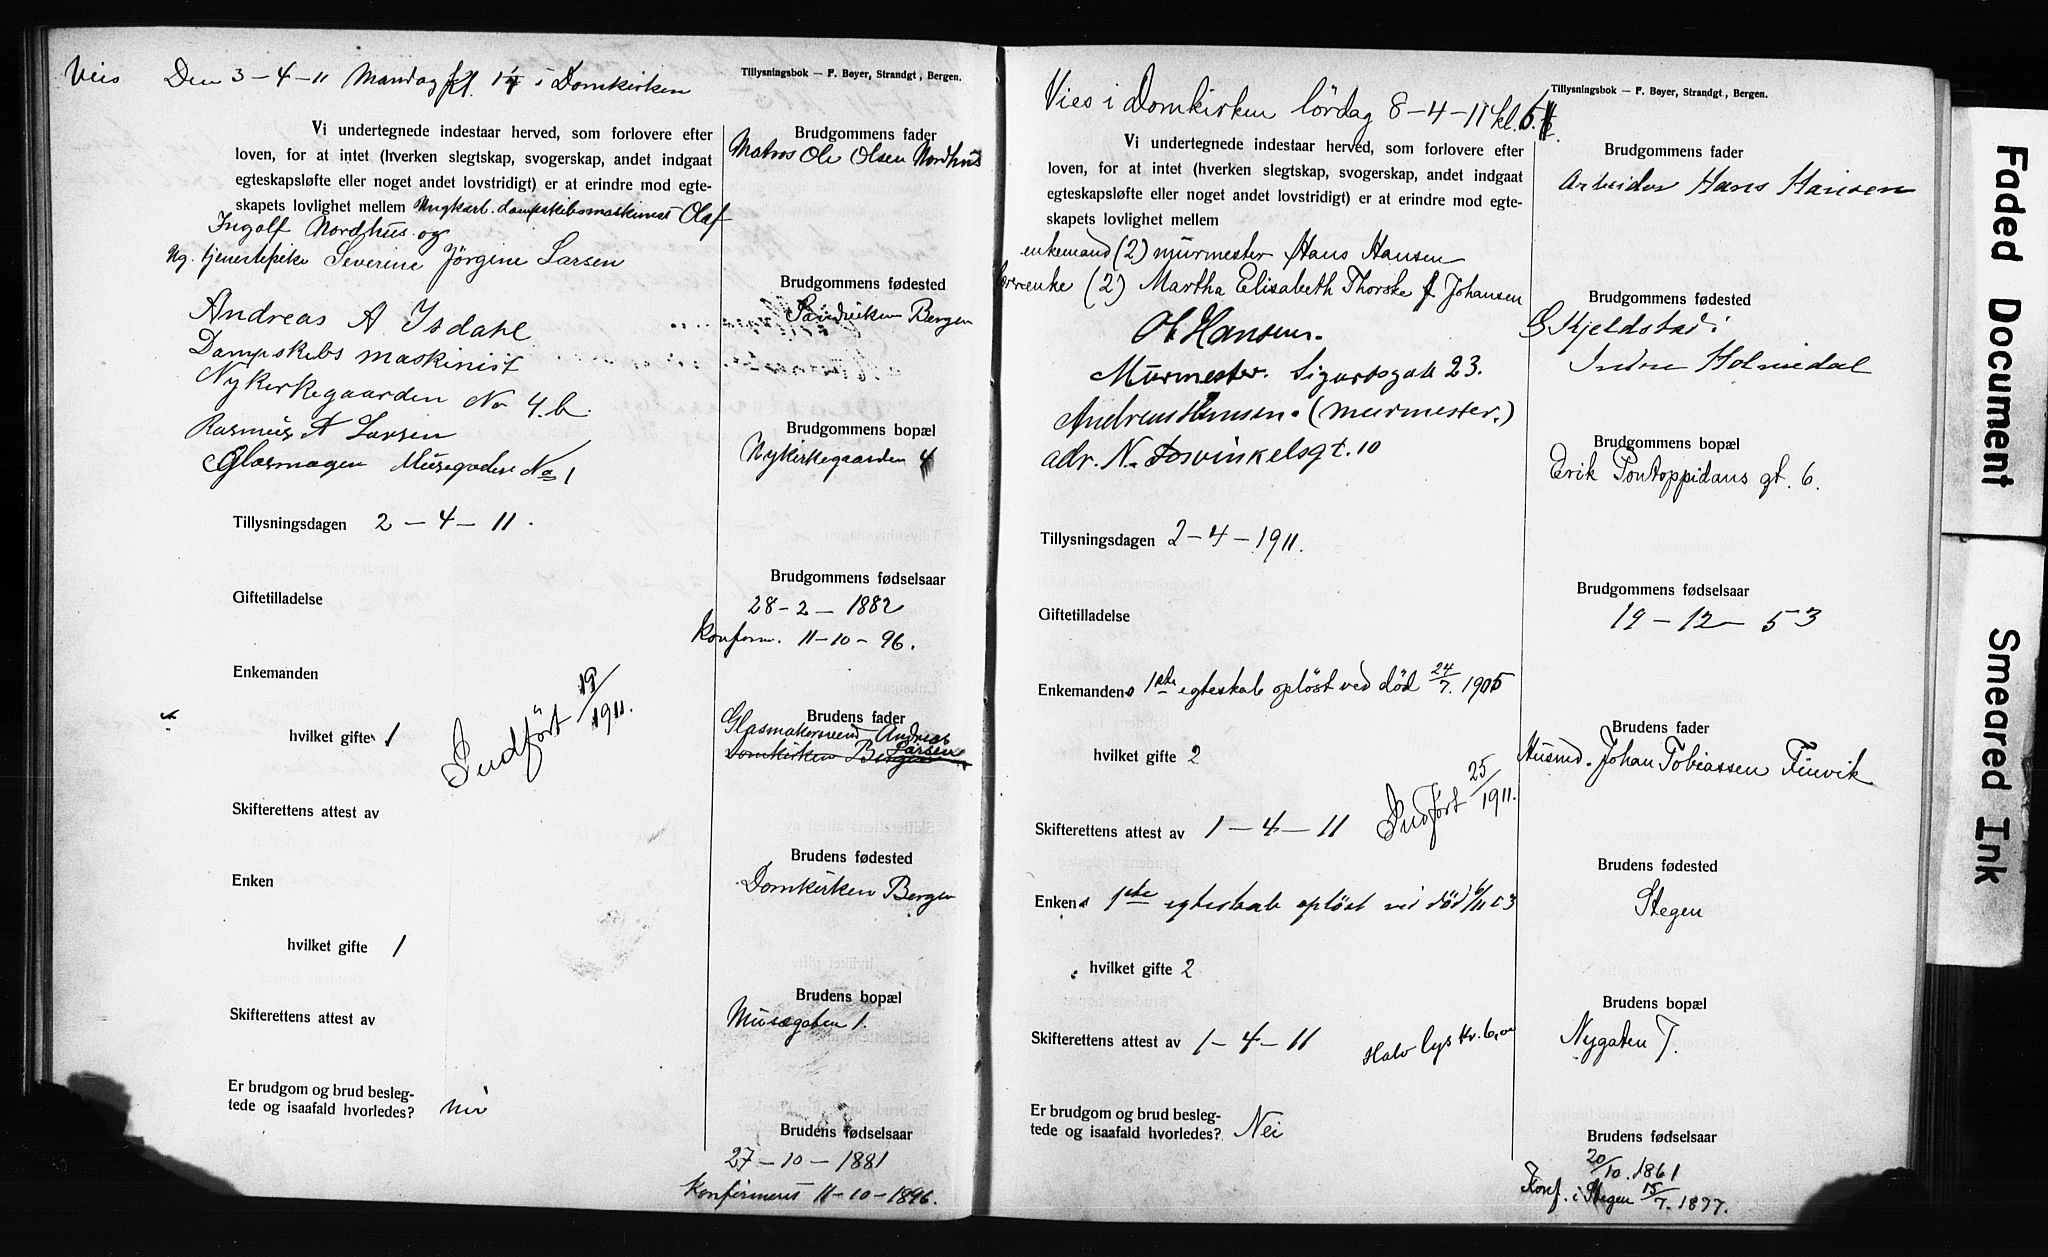 Vies Den 3-4-11 Mandag kl. i Domkirken
Tillysningsbok — F. Beyer, Strandgt, Bergen.
Vi undertegnede indestaar herved, som forlovere efter
loven, for at intet (hverken slegtskap, svogerskap, andet indgaat
egteskapsløfte eller noget andet lovstridigt) er at erindre mod egte-
skapets lovlighet mellem Ungkarl. dampskibsmaskinist Olaf
Ingolf Nordhus og
Ug. tjenestepike Severine Jörgine Larsen
Andreas A. Isdahl
Dampskibs maskinist
Nykirkegaarden No 4.b.
Rasmus A Larsen
Glasmagen Musegaden No 1
Tillysningsdagen 2-4-11.
Giftetilladelse
Enkemanden
hvilket gifte 1
Indfört 19/1911.
Skifterettens attest av
Enken
hvilket gifte 1
Skifterettens attest av
Er brudgom og brud besleg-
tede og isaafald hvorledes? nei
Brudgommens fader
Matros Ole Olsen Nordhus
Brudgommens fødested
Sandviken Bergen
Brudgommens bopæl
Nykirkegaarden 4
Brudgommens fødselsaar
28-2-1882
Konform. 11-10-96.
Brudens fader
Glasmakersvend Andreas
Larsen
Domkirken Bergen
Brudens fødested
Domkirken Bergen
Brudens bopæl
Musegaten 1.
Brudens fødselsaar
27-10-1881
Konfirmeret 11-10-1896.
Vies i Domkirken lördag 8-4-11 kl.
Tillysningsbok — F. Beyer, Strandgt, Bergen.
Vi undertegnede indestaar herved, som forlovere efter
loven, for at intet (hverken slegtskap, svogerskap, andet indgaat
egteskapsløfte eller noget andet lovstridigt) er at erindre mod egte-
skapets lovlighet mellem
enkemand (2) murmester Hans Hansen
enke (2) Martha Elisabeth Thorske f Johansen
Hansen.
Murmester. Sigurdsgate 23.
Andreas Hansen. (murmester.)
adr. N. Losvinkelsgt. 10
Tillysningsdagen 2-4-1911.
Giftetilladelse
Enkemandens 1ste egteskab oplöst ved död 24/7. 1905
hvilket gifte 2
Indfört 25/1911.
Skifterettens attest av 1-4-11
Enkens 1ste egteskab oplöst ved död 6/11 03
hvilket gifte 2
Skifterettens attest av 1-4-11
Halv lys kr. 6,00
Er brudgom og brud besleg-
tede og isaafald hvorledes? Nei
Brudgommens fader
Arbeider Hans Hansen
Brudgommens fødested
Skjeldstad i
Indre Holmedal
Brudgommens bopæl
Erik Pontoppidans gt. 6.
Brudgommens fødselsaar
19-12-53
Brudens fader
Husmd. Johan Tobiassen Finvik
Brudens fødested
Stegen
Brudens bopæl
Nygaten 7.
Brudens fødselsaar
20/10. 1861
Konf. i Stegen 15/7. 1877.
Faded Document
Smeared Ink